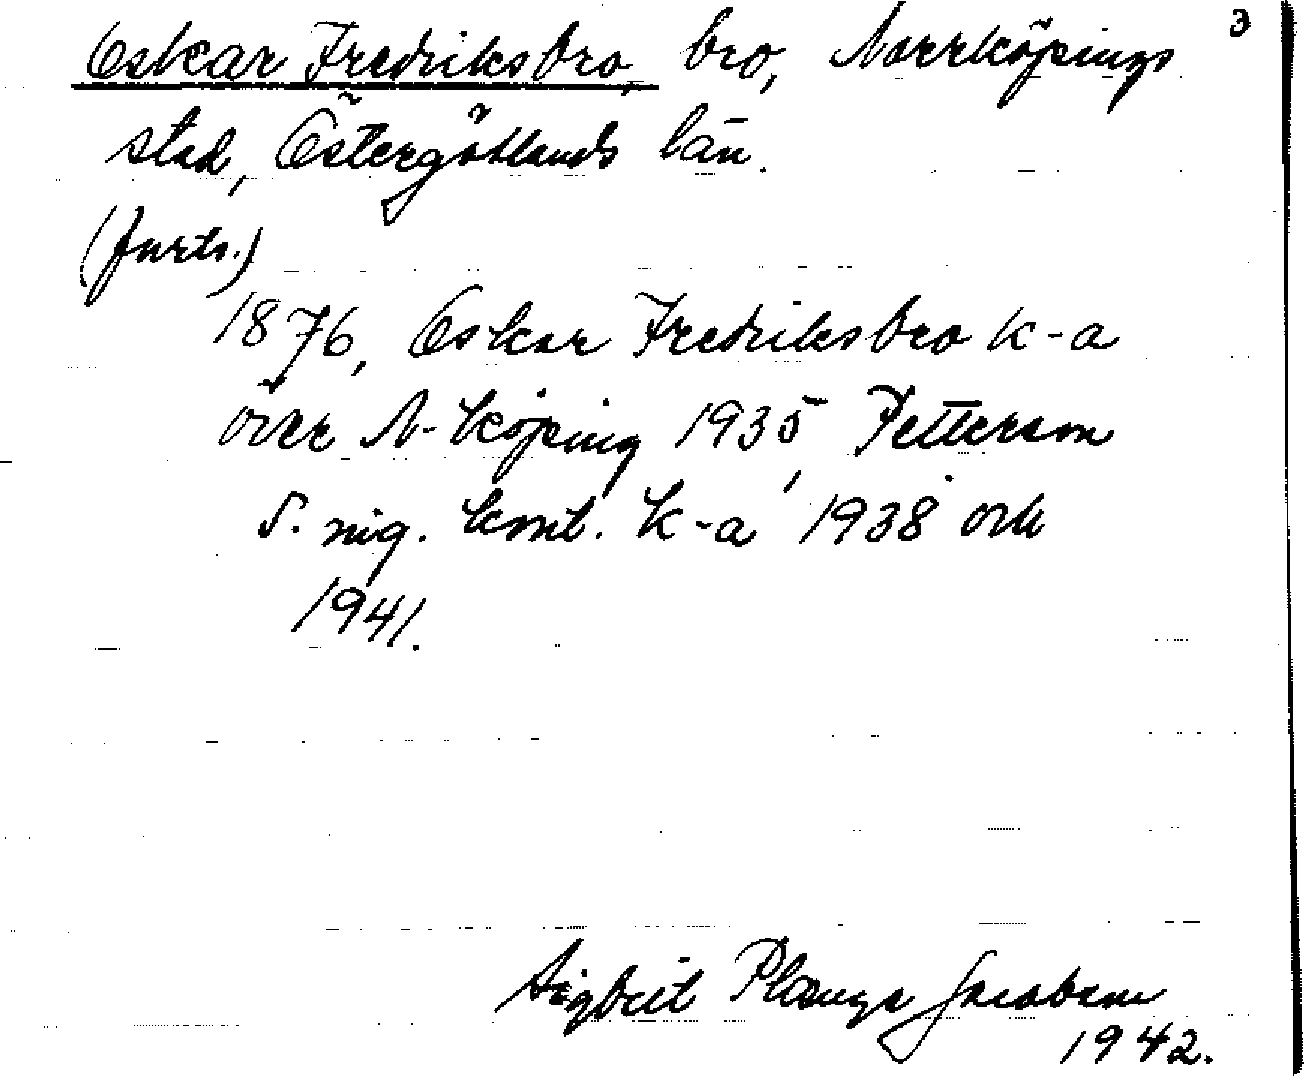 3
Oskar Fredriksbro, bro, Norrköpings
stad, Östergötlands län.
(forts.)
1876, Oskar Fredriksbro k-a
över N-köping 1935, Petterson
S. nig. kont. k-a 1938 och
1941.
Sigbrit Plænge Jacobson
1942.